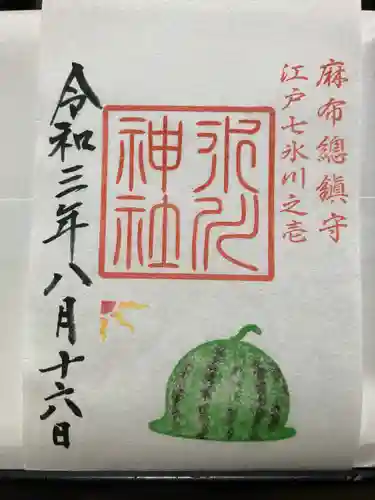 麻布總鎮守
江戸七氷川之壱
氷川
神社
令和三年八月十六日